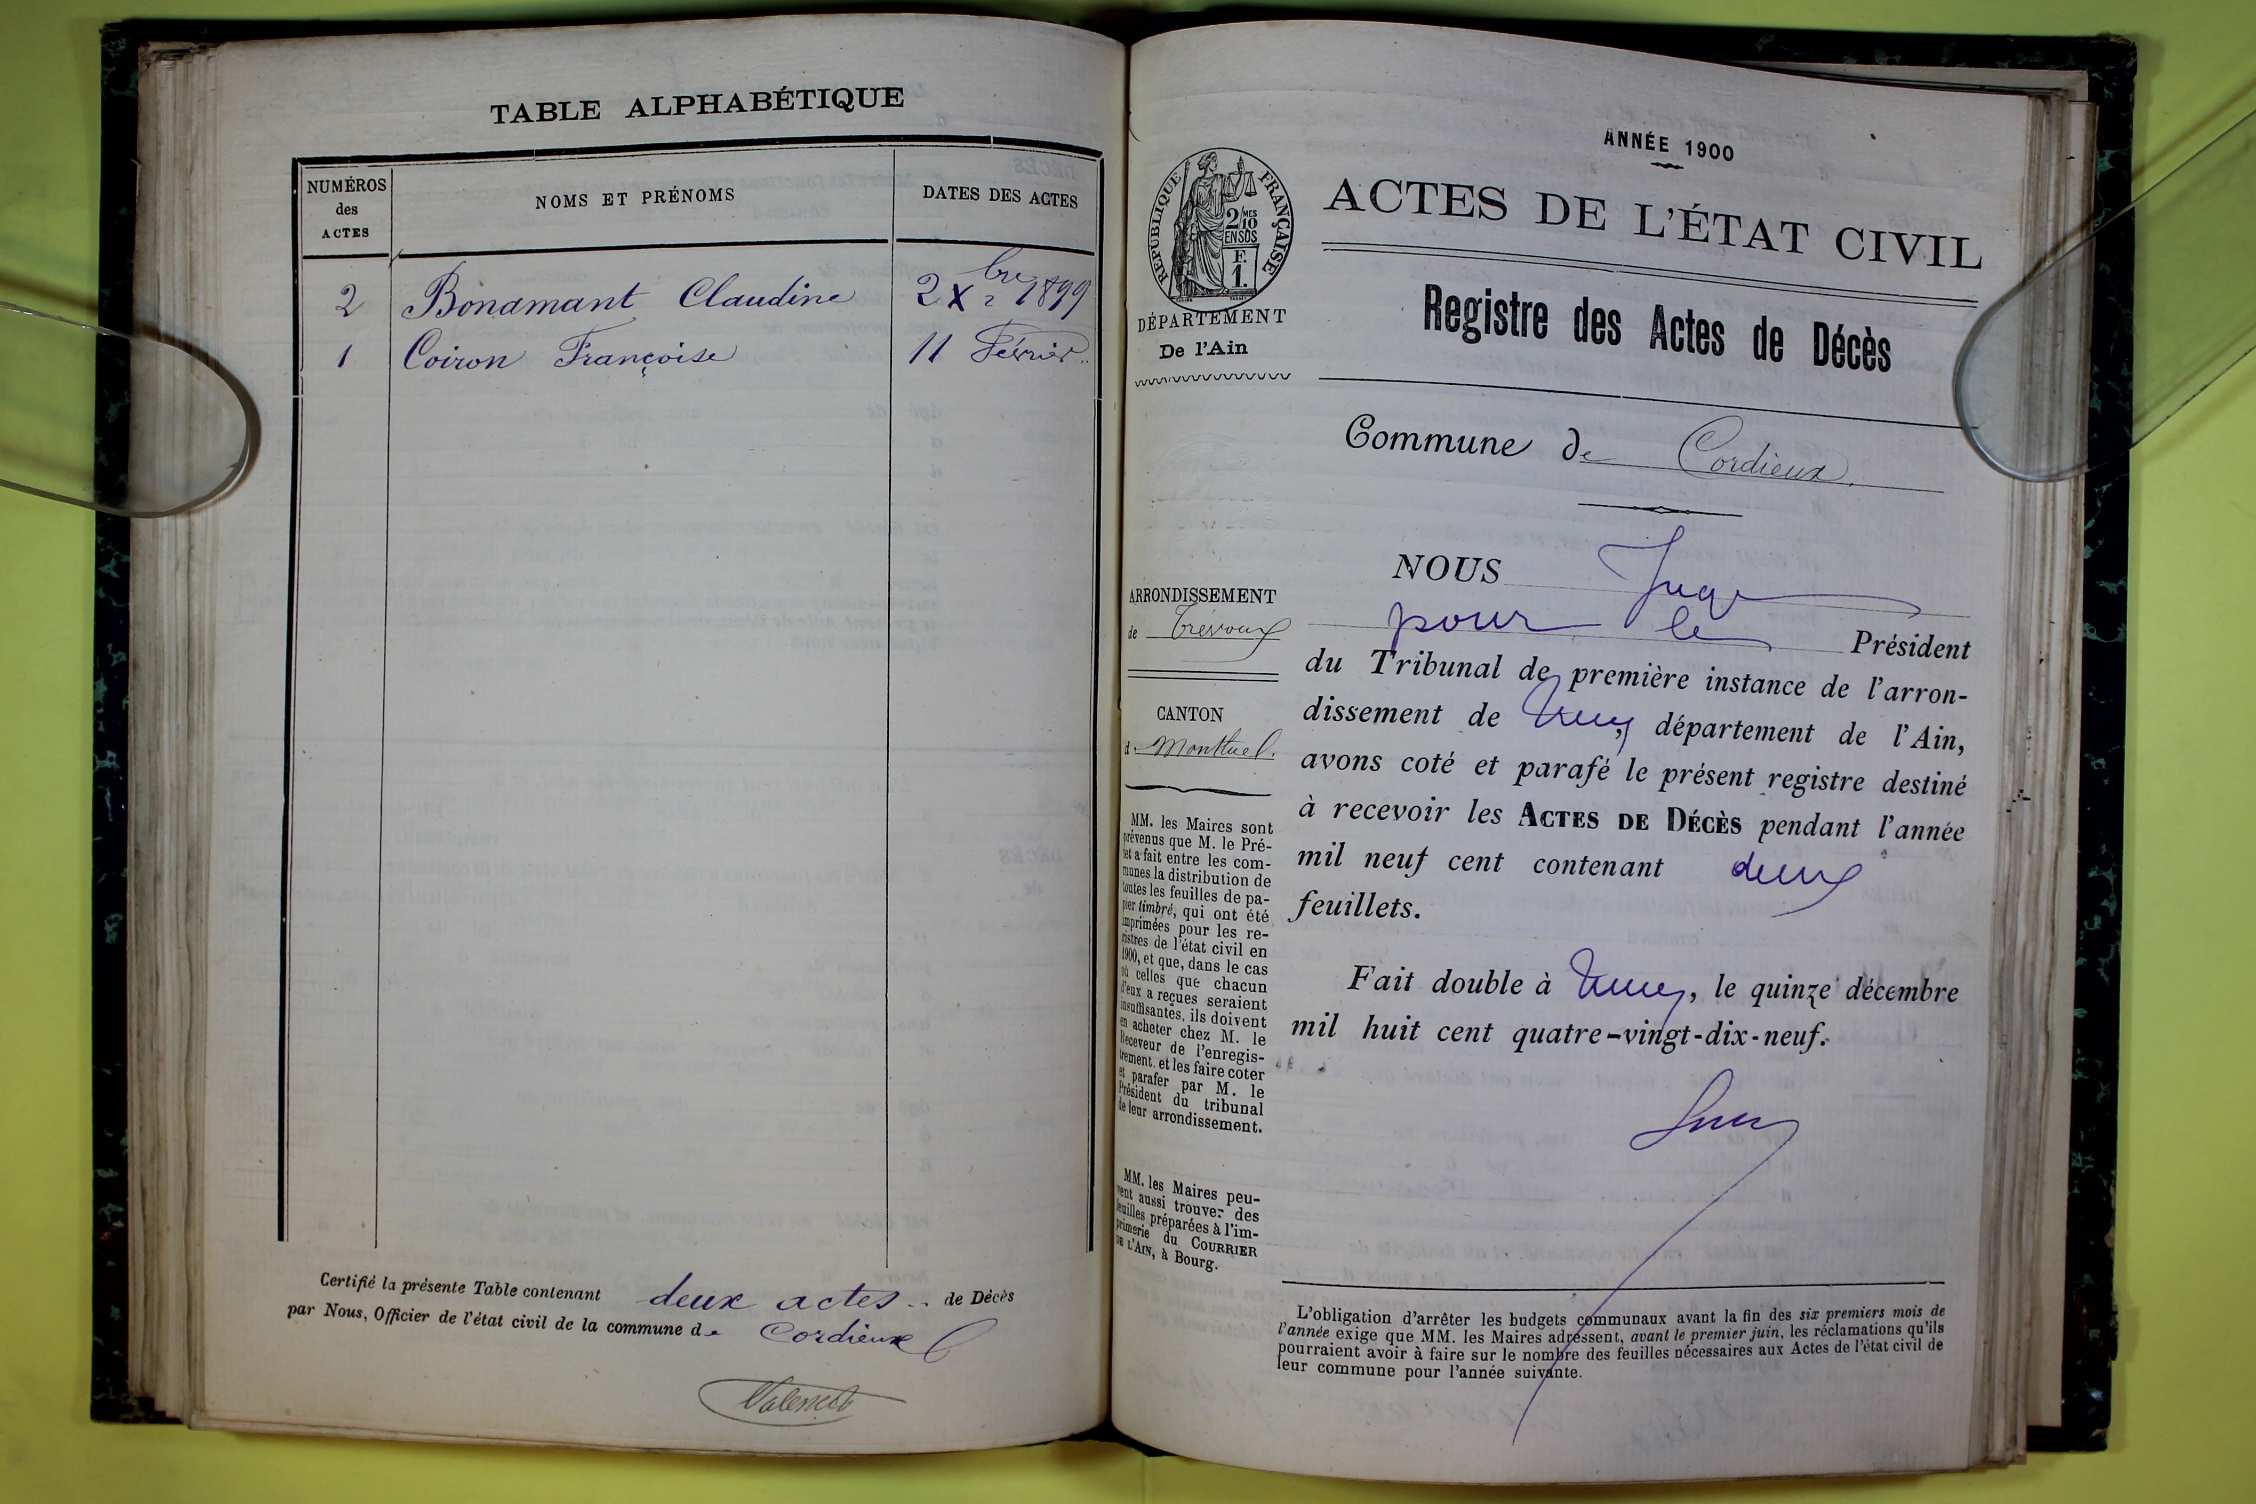 TABLE ALPHABÉTIQUE
NUMÉROS
des
ACTES
NOMS ET PRÉNOMS
DATES DES ACTES
2 Bonamant Claudine 2 Xbre 1899
1 Coiron Françoise 11 Février
Certifié la présente Table contenant deux actes de Décès
par Nous, Officier de l'état civil de la commune de Cordieux
ANNÉE 1900
RÉPUBLIQUE FRANÇAISE
2/10 MES
EN SUS
F.
1.
DÉPARTEMENT
De l'Ain
ACTES DE L'ÉTAT CIVIL
Registre des Actes de Décès
Commune de Cordieux.
ARRONDISSEMENT
de Trévoux
CANTON
d. Montluel.
MM. les Maires sont
prévenus que M. le Pré-
fet a fait entre les com-
munes la distribution de
toutes les feuilles de pa-
pier timbré, qui ont été
imprimées pour les re-
gistres de l'état civil en
1900, et que, dans le cas
où celles que chacun
d'eux a reçues seraient
insuffisantes, ils doivent
en acheter chez M. le
Receveur de l'enregis-
trement, et les faire coter
et parafer par M. le
Président du tribunal
de leur arrondissement.
MM. les Maires peu-
vent aussi trouver des
feuilles préparées à l'im-
primerie du COURRIER
DE L'AIN, à Bourg.
NOUS Juge
pour le Président
du Tribunal de première instance de l'arron-
dissement de Trévoux, département de l'Ain,
avons coté et parafé le présent registre destiné
à recevoir les ACTES DE DÉCÈS pendant l'année
mil neuf cent contenant deux
feuillets.
Fait double à Trévoux, le quinze décembre
mil huit cent quatre-vingt-dix-neuf.
L'obligation d'arrêter les budgets communaux avant la fin des six premiers mois de
l'année exige que MM. les Maires adressent, avant le premier juin, les réclamations qu'ils
pourraient avoir à faire sur le nombre des feuilles nécessaires aux Actes de l'état civil de
leur commune pour l'année suivante.